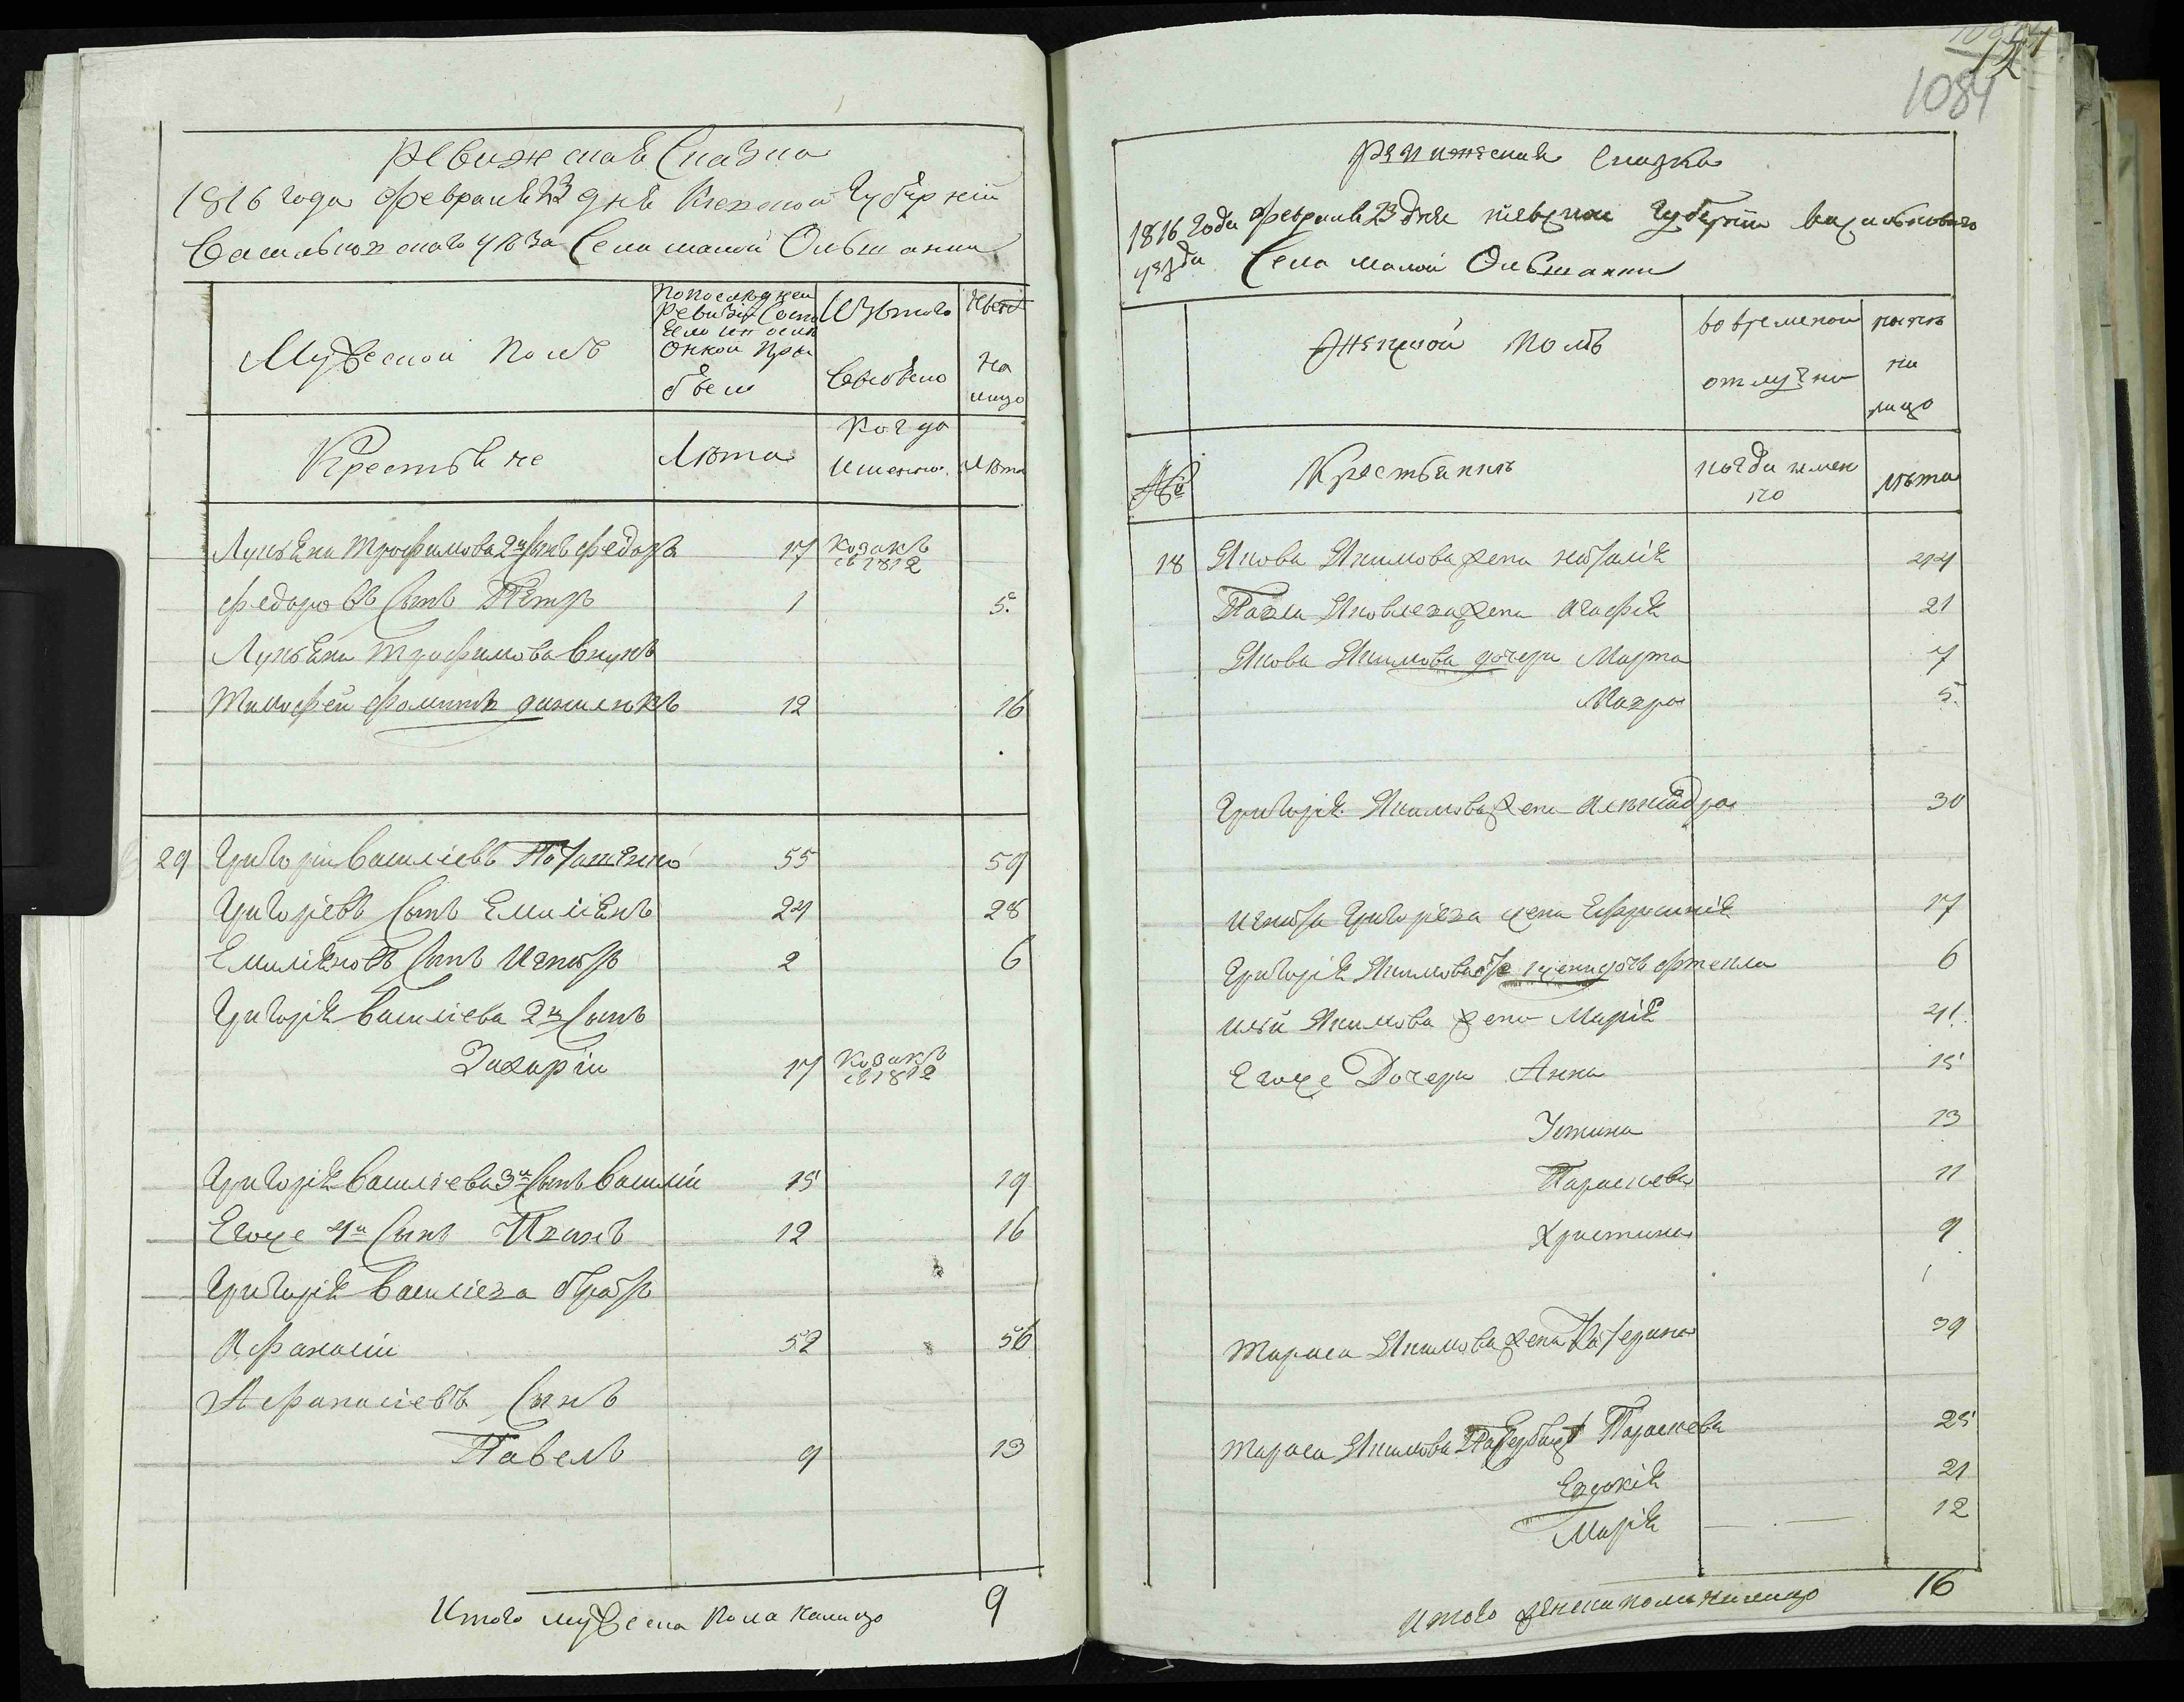 Ревижская Сказка
1816 года февраля 23 дня Киевской Губерніи
Васильковскаго уѣзда Села малой Ольшанки
Мужеской полъ
По последней
Ревизіи состо
яло и
оной при
было
Изътого
Выбыло
Нынѣ
на
лицо
Крестьяне
Лѣта
Когда
именно.
Лѣта
Лукьяна Трофимова 2й сынъ федоръ 17 Козакъ въ 1812
федоровъ Сынъ Петръ 1 5.
Лукьяна Трофимова внукъ
Тимофей фоминъ даниленкъ 12 16
29 Григорій Василіевъ Поташенко 55 59
Григоріевъ Сынъ Емиліянъ 24 28
Емиліяновъ Сынъ Игнатъ 2 6
Григорія Василіева 2й Сынъ
Захарій 17 Козакъ въ 1812
Григорія Василіева 3й Сынъ Василій 15 19
Егоже 4й Сынъ Иванъ 12 16
Григорія Василіева братъ
Афанасій 52 56
Афанасіевъ Сынъ
Павелъ 9 13
Итого мужеска пола налицо 9
1084
Ревижская Сказка
1816 года февраля 23 дня киевской Губерніи васильковскаго
уѣзда Села малой Ольшанки
Женской полъ
во временной
отлучки
нынѣ
на
лицо
№
Крестьянкъ
когда имен
но
лѣта
18 Якова Якимова жена наталія 44
Павла Яковлева жена агафія 21
Якова Якимова дочери Марта 7
Мавра 5.
Григорія Якимова жена Александра 30
игната Григоріева жена Ефросинія 17
Григорія Якимова 6
ильи Якимова жена Марія 41.
Егоже Дочери Анна 15
Устина 13
Параскева 11
Христина 9
Тараса Якимова жена Катерина 39
Тараса Якимова Параскева 25
Евдокія 21
Марія 12
Итого женска пола налицо 16